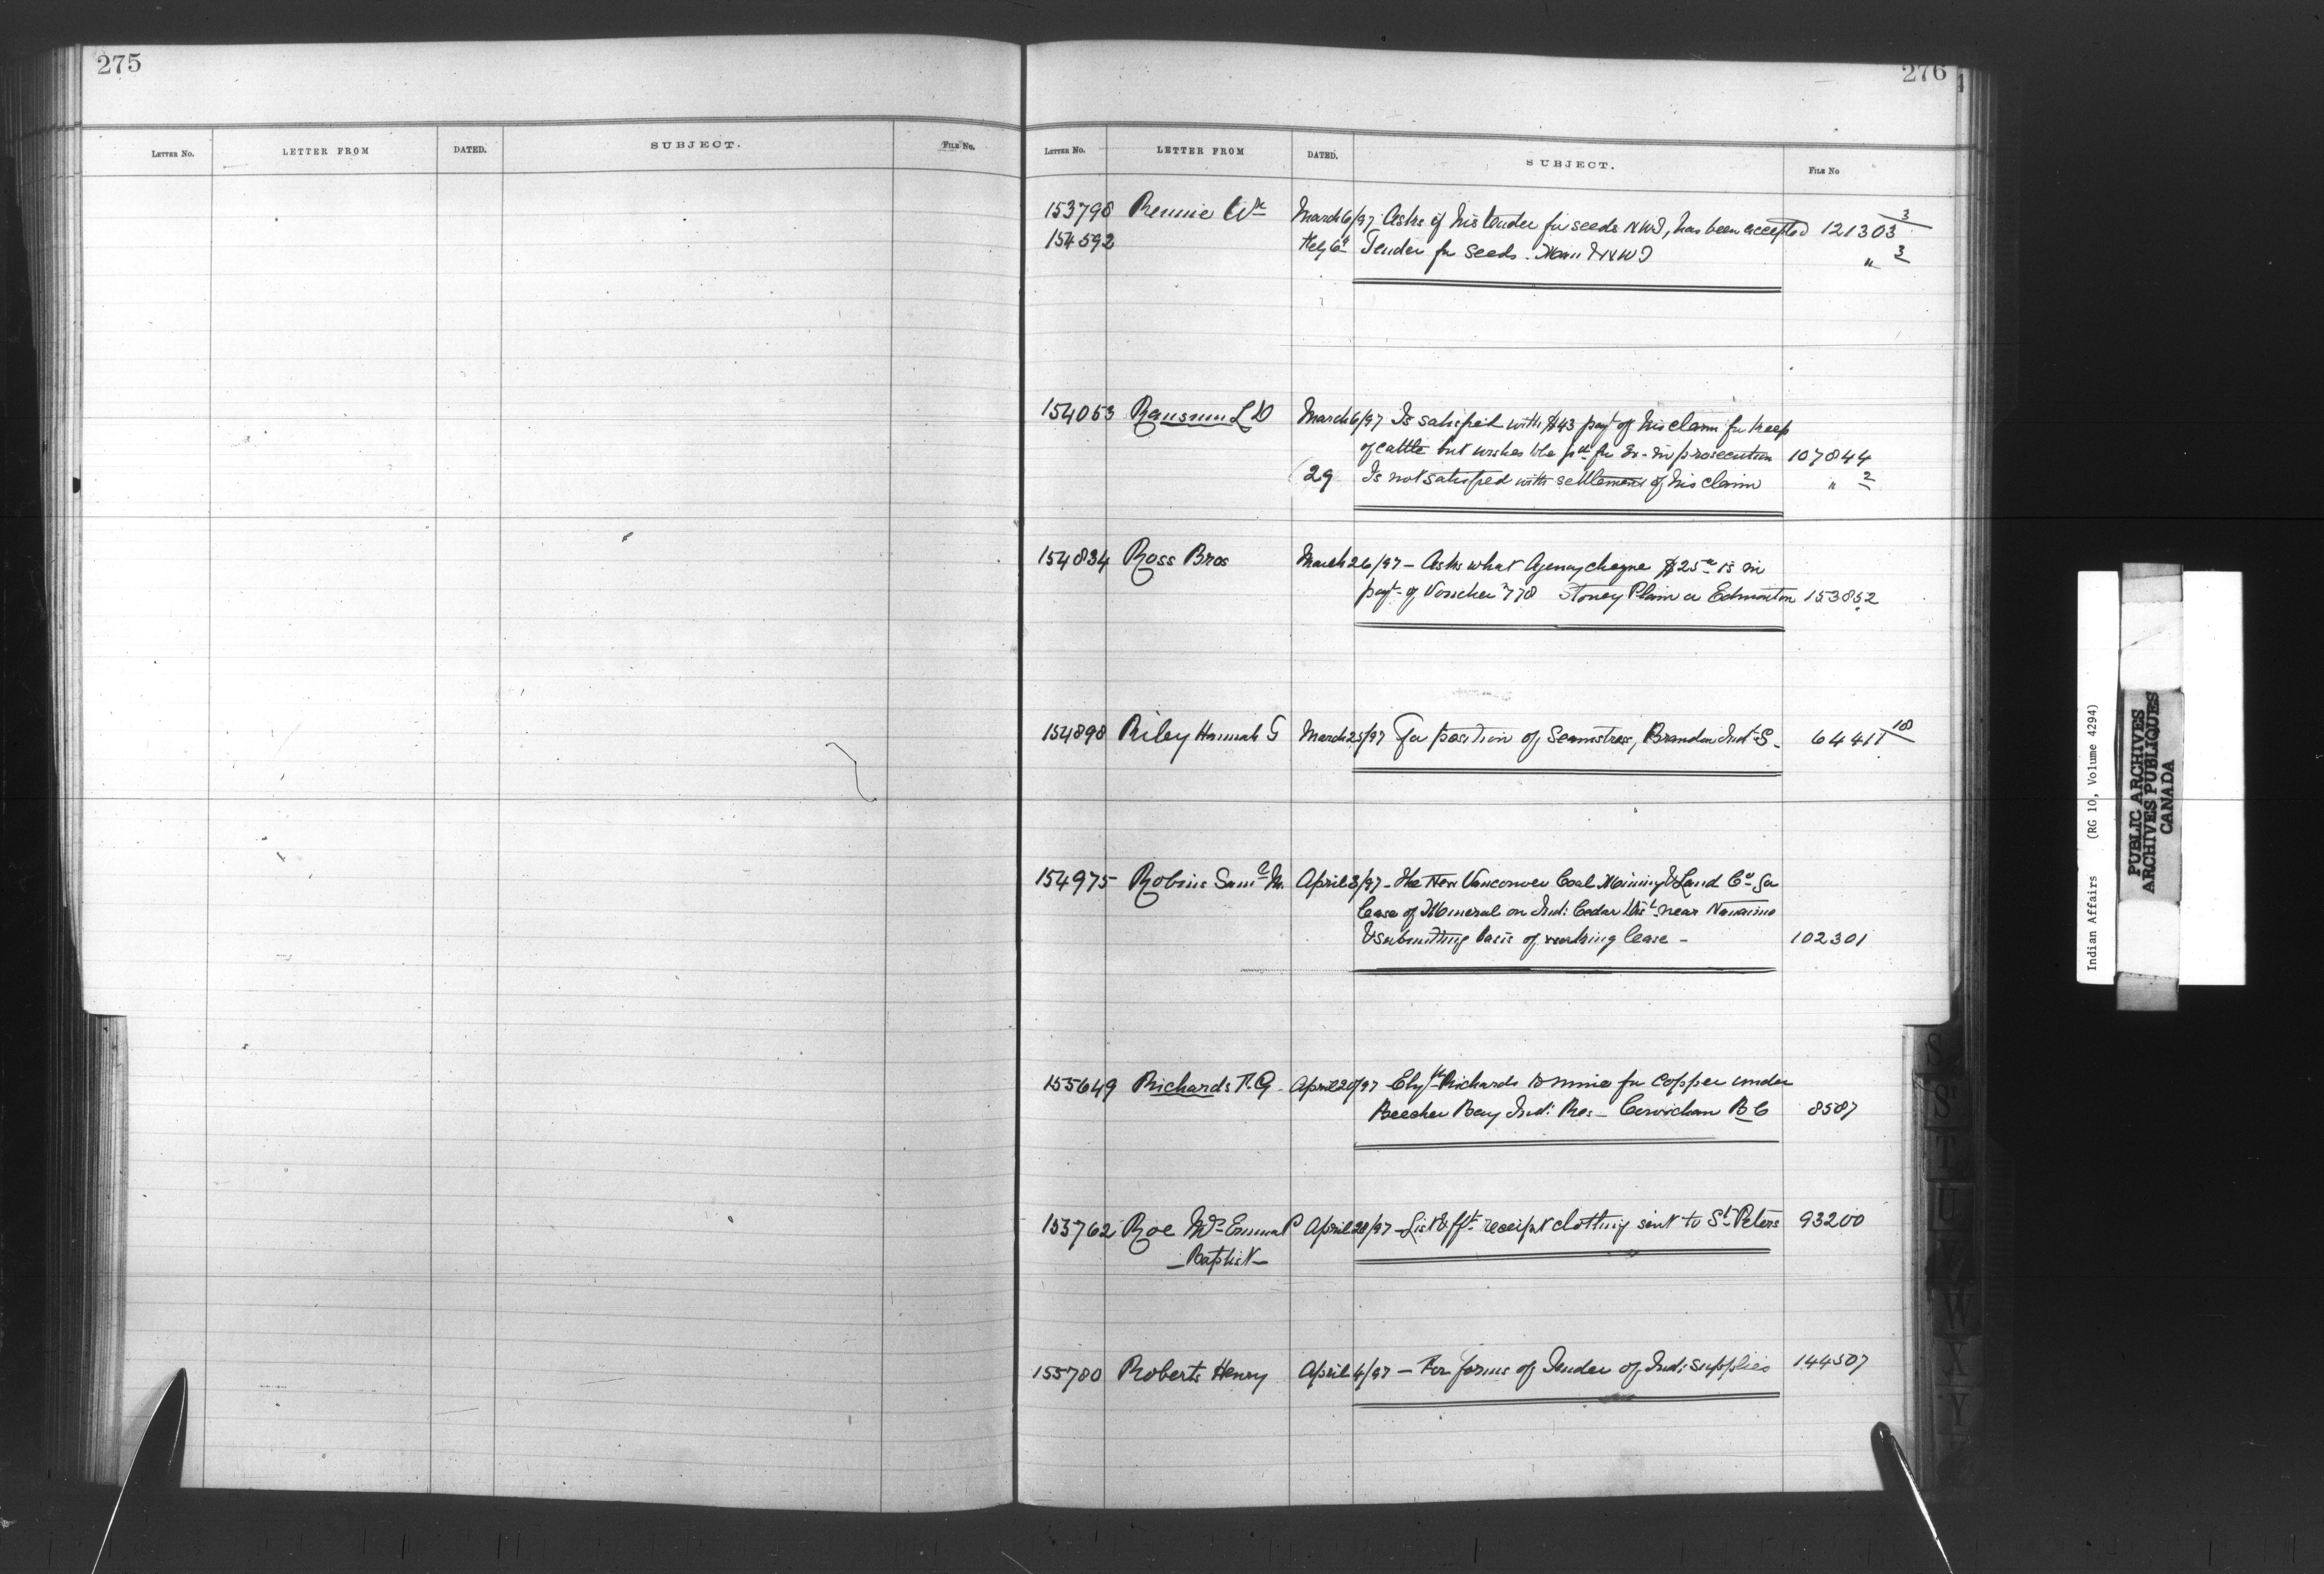 275
LETTER NO. LETTER FROM DATED. SUBJECT. FILE NO.
276
LETTER NO. LETTER FROM DATED. SUBJECT. FILE NO
153798 Rennie Wm March 6/97 Asks if his tender for seeds NWT, has been accepted 121303 3
154592 Tender for Seeds. Man & NWT " 3
154053 L D March 6/97 Is satisfied with $43 payt of his claim for keep
of cattle but wishes to be pd for in prosecution 107844
29 Is not satisfied with settlement of his claim " 2
154834 Ross Bros March 26/97 - Asks what Agency cheque $25 is in
payt of Voucher 778 Stoney Plain or Edmonton 153852
154898 Riley Hannah G March 25/97 For position of Seamstress, Brandon Indl S. 64411 18
154975 Robins Saml M. April 3/97 - The New Vancouver Coal Mining & Land Co for
lease of Mineral on Ind: Cedar Dist near Nanaimo
& submitting basis of working lease - 102301
155649 Richards T. G. April 20/97 - Richards to mine for Copper under
Beecher Bay Ind: Res - Cowichan B C 8587
153762 Roe Mrs Emma P April 28/97 - List & receipt clothing sent to St Peters 93200
- Baptist -
155780 Roberts Henry April 4/97 - For forms of Tender of Ind: supplies 144507
S
St
T
U
W
X
Y
Indian Affairs (RG 10, Volume 4294)
PUBLIC ARCHIVES
ARCHIVES PUBLIQUES
CANADA